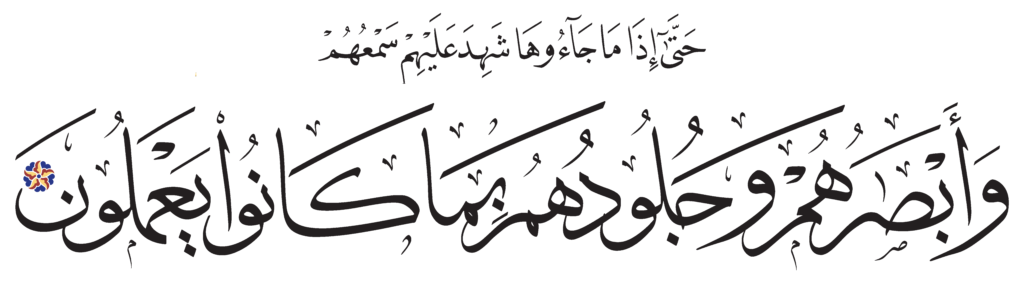 حَتَّىٰ إِذَا مَا جَاءُوهَا شَهِدَ عَلَيْهِمْ سَمْعُهُمْ
وَأَبْصَٰرُهُمْ وَجُلُودُهُمْ بِمَا كَانُوا يَعْمَلُونَ